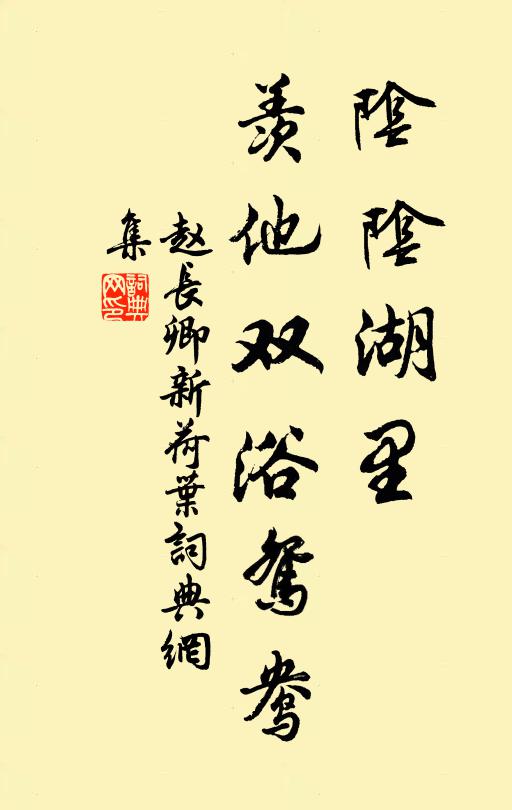 陰陰湖里
羨他双浴鴛鴦
赵長卿新荷葉詞典網
集
詞典
网印